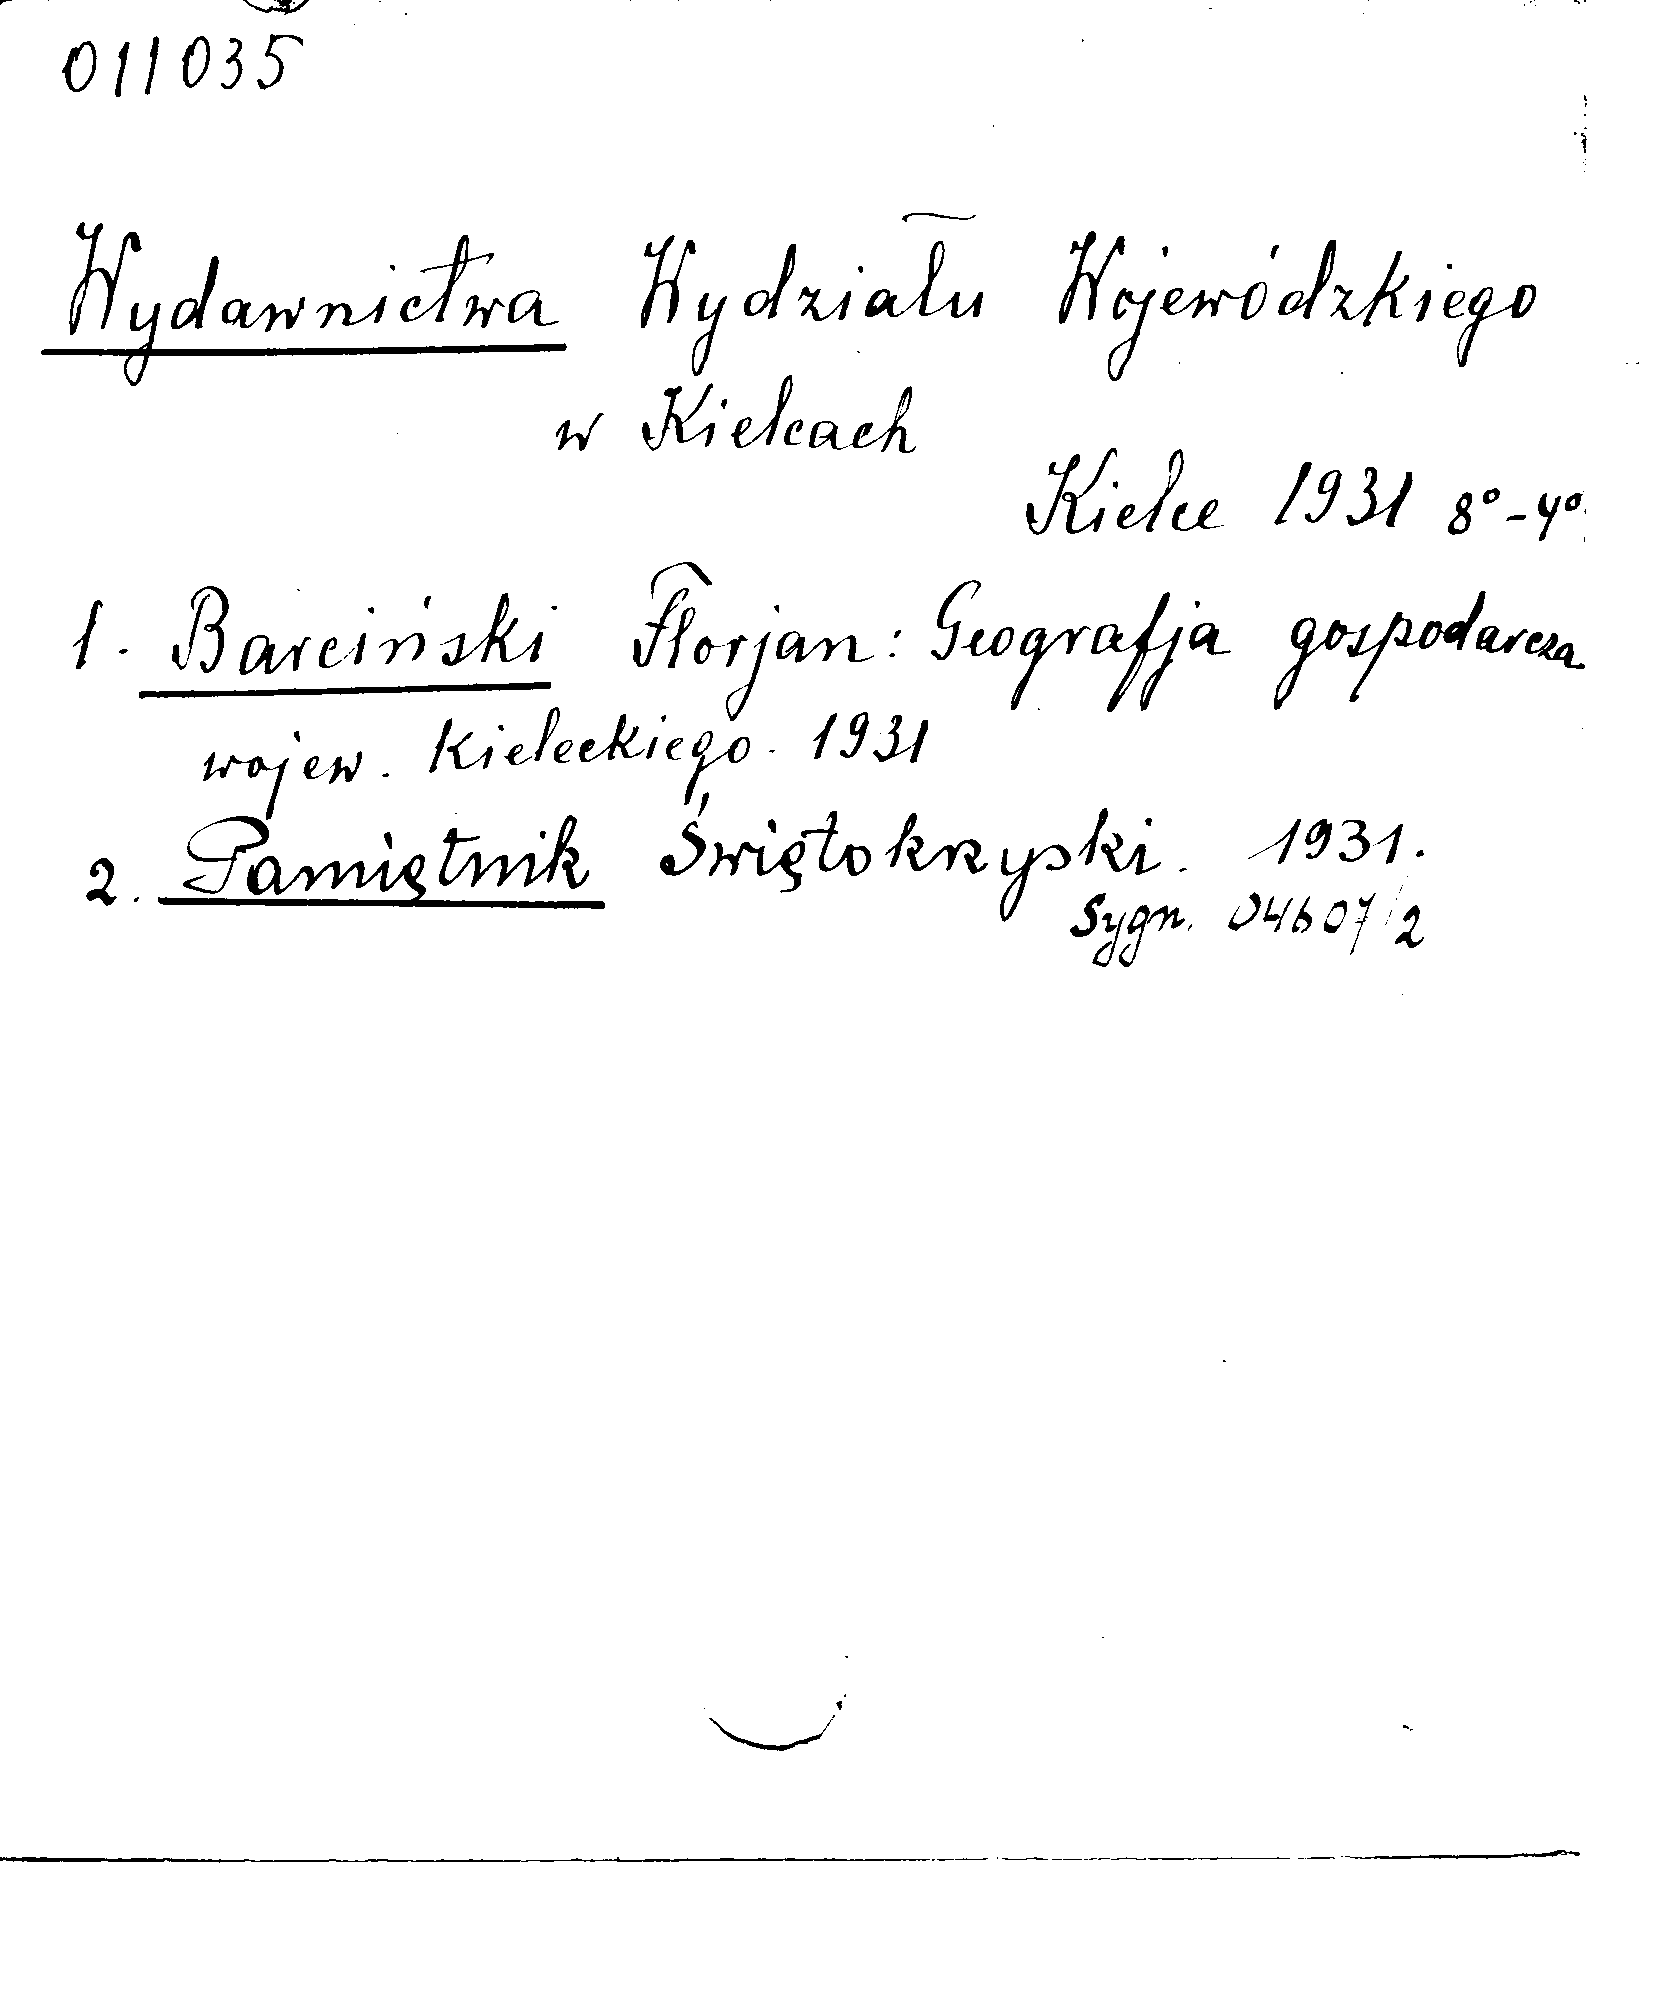 011035
Wydawnictwa Wydziału Wojewódzkiego
w Kielcach
Kielce 1931 8°-4°
1. Barciński Florjan: Geografja gospodarcza
wojew. Kieleckiego. 1931
2. Pamiętnik Świętokrzyski. 1931.
Sygn. 04607/2